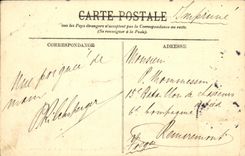 CARTE POSTALE
Imprimé
Tous les pays étrangers n'acceptent pas la Correspondance au recto
(Se renseigner à la Poste)
CORRESPONDANCE
ADRESSE
Une poignée de
main
Monsieur
15e Bataillon de Chasseurs
à pied
6e Compagnie
Remiremont
Vosges